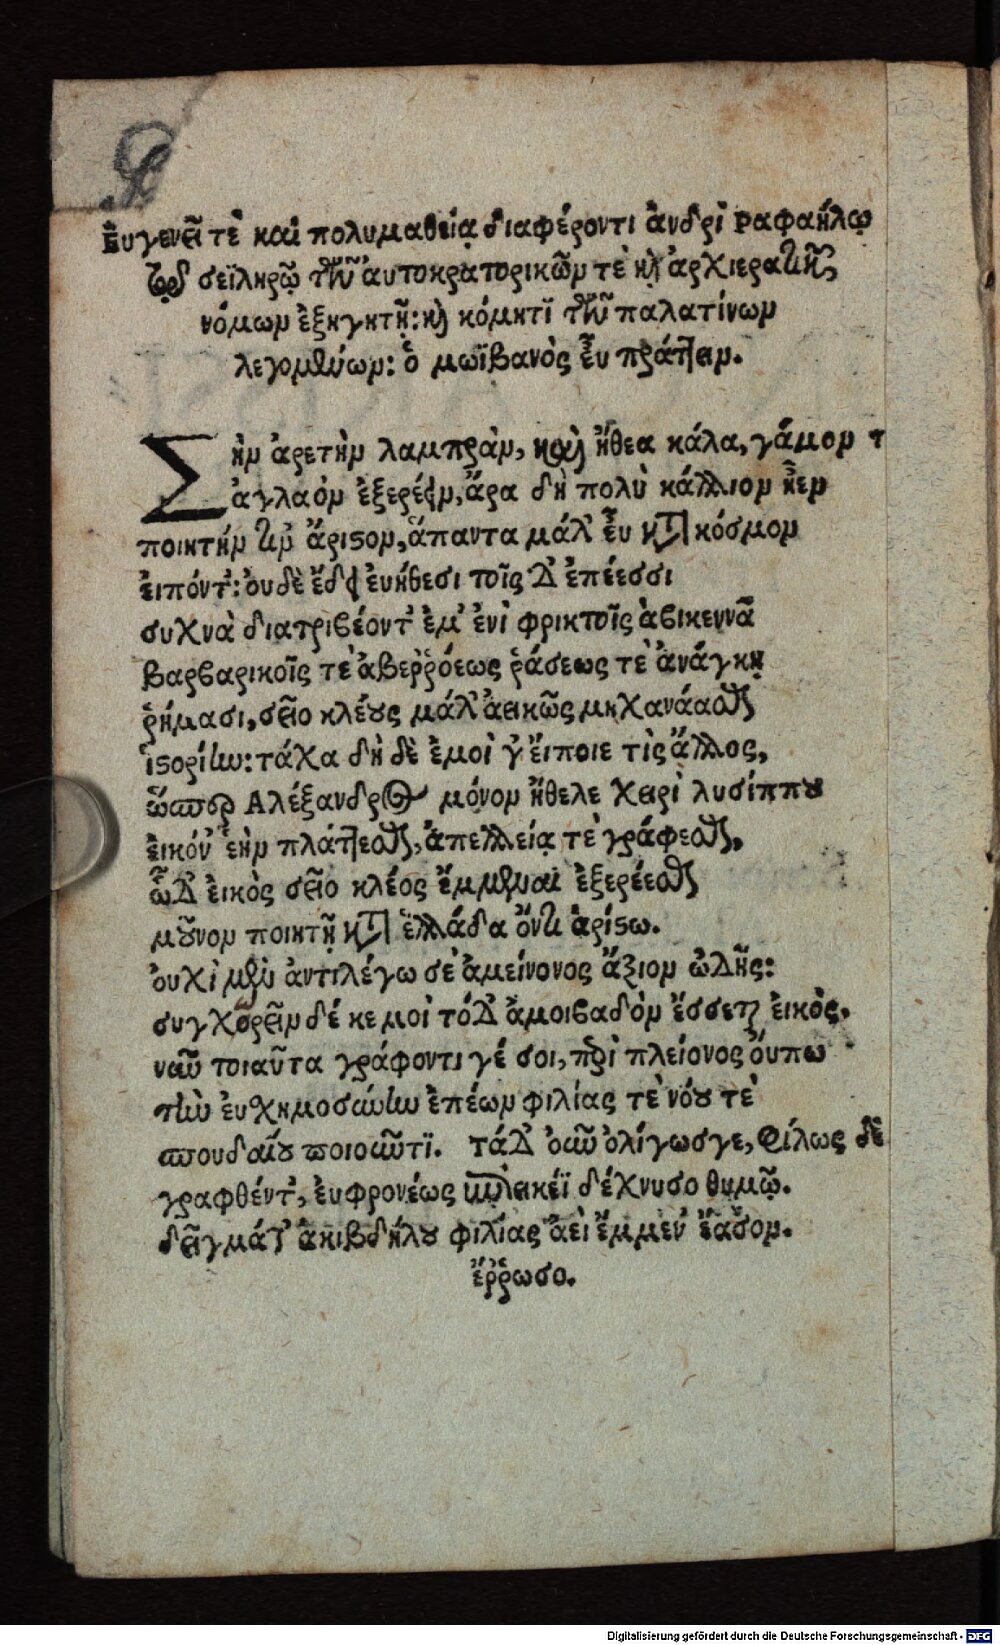 Ἐυγενεῖ τὲ καὶ πολυμαθείᾳ διαφέροντι ἀνδρὶ Ραφαήλῳ
σεϊληρῷ τῶν ἀυτοκρατορικῶν τὲ καὶ ἀρχιερατικῶν
νόμων ἐξηγητῇ: καὶ κόμητϊ τῶν παλατίνων
λεγομένων: ὁ μωϊβανὸς ἐυ πράττειν.
Σὴν ἀρετὴν λαμπρὰν, καὶ ἤθεα κάλα, γάμον τ
ἀγλαὸν ἐξερέειν, ἄρα δὴ πολὺ κάλλιον ἦεν
ποιητήν τιν ἄριστον, ἅπαντα μάλ' ἐυ κατὰ κόσμον
ἐιπόντ': ὀυδὲ ἔδει ἐυήθεσι τοῖςδ' ἐπέεσσι
συχνὰ διατριβέοντ' ἐμ' ἐνὶ φρικτοῖς ἀβικεννᾶ
βαρβαρικοῖς τὲ ἀβεῤῥόεως ῥάσεως τὲ ἀνάγκῃ
ῥήμασι, σεῖο κλέους μάλ' ἀεικῶς μηχανάασθαι
ἱστορίην: τάχα δὴ δὲ ἐμοὶ γ' ἔιποιε τὶς ἄλλος,
ὥσπερ Αλέξανδρος μόνον ἤθελε χειρὶ λυσίππου
ἐικόν' ἑὴν πλάττεσθαι, ἀπελλείᾳ τὲ γράφεσθαι,
ὧδ' ἐικὸς σεῖο κλέος ἔμμεναι ἐξερέεσθαι
μοῦνον ποιητῇ κατὰ ἑλλάδα ὄντι ἀρίστω.
ὀυχὶ μὲν ἀντιλέγω σὲ ἀμείνονος ἄξιον ὠδῆς:
συγχορεῖν δέ κε μοὶ τόδ' ἀμοιβαδὸν ἔσσεται ἐικὸς.
νῦν τοιαῦτα γράφοντι γέ σοι, περὶ πλείονος ὄυπω
τὴν ἐυχημοσύνην ἐπέων φιλίας τὲ νόου τὲ
σπουδαίου ποιοῦντϊ. τάδ' ὀυν ὀλίγωσγε, φίλως δὲ
γραφθέντ', ἐυφρονέως ἐπιεικέϊ δέχνυσο θυμῷ.
δεῖγμάτ' ἀκιβδήλου φιλίας ἀεὶ ἔμμεν' ἔασον.
ἔῤῥωσο.
Digitalisierung gefördert durch die Deutsche Forschungsgemeinschaft - DFG